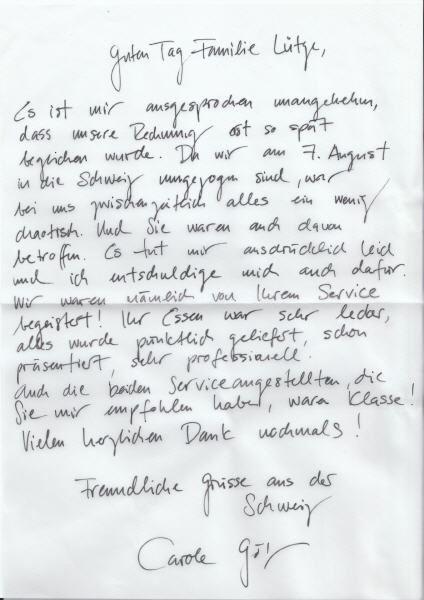 Guten Tag Familie Lütge,
Es ist mir ausgesprochen unangenehm,
dass unsere Rechnung erst so spät
beglichen wurde. Da wir am 7. August
in die Schweiz umgezogen sind, war
bei uns zwischenzeitlich alles ein wenig
chaotisch. Und Sie waren auch davon
betroffen. Es tut mir ausdrücklich leid
und ich entschuldige mich auch dafür.
Wir waren nämlich von Ihrem Service
begeistert! Ihr Essen war sehr lecker,
alles wurde pünktlich geliefert, schön
präsentiert, sehr professionell.
Auch die beiden Serviceangestellten, die
Sie mir empfohlen haben, waren Klasse!
Vielen herzlichen Dank nochmals!
Freundliche Grüsse aus der
Schweiz
Carole